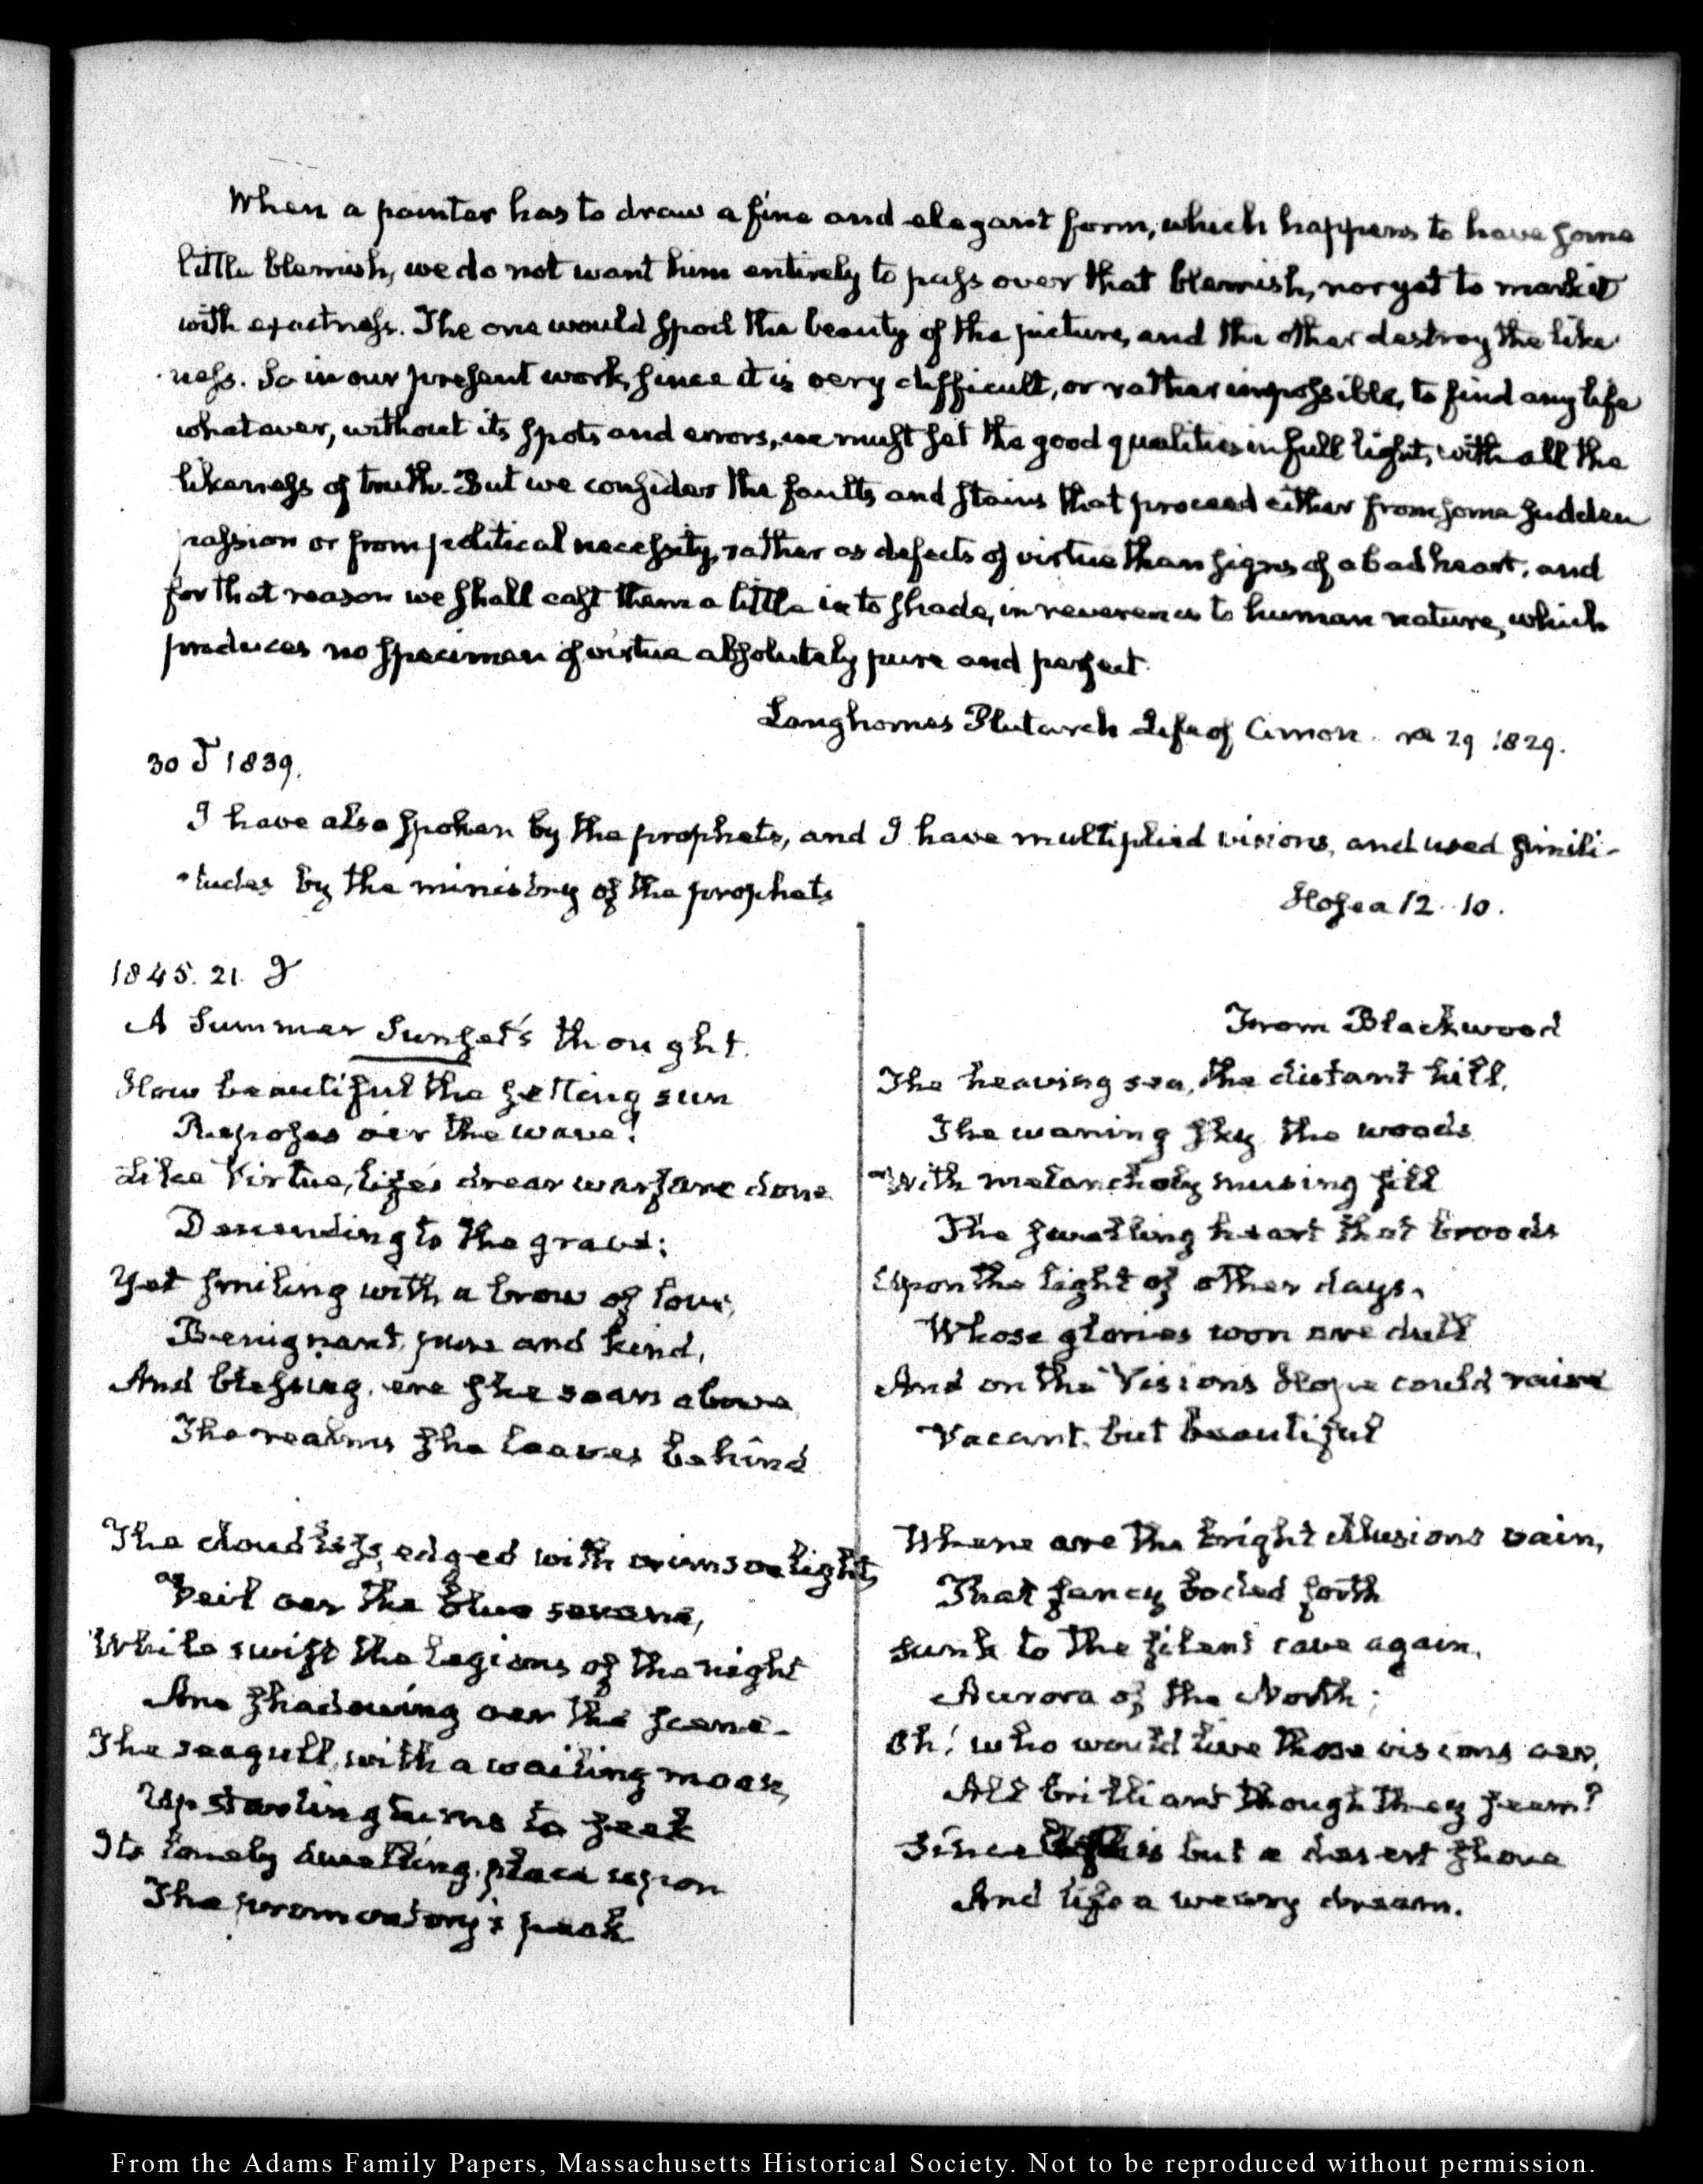 When a painter has to draw a fine and elegant form, which happens to have some
little blemish, we do not want him entirely to pass over that blemish, nor yet to mark it
with exactness. The one would spoil the beauty of the picture, and the other destroy the like
ness. So in our present work, since it is very difficult, or rather impossible, to find any life
whatever, without its spots and errors, we must set the good qualities in full light, with all the
likeness of truth. But we consider the faults and stains that proceed either from some sudden
passion or from political necessity, rather as defects of virtue than signs of a bad heart; and
for that reason we shall cast them a little into shade, in reverence to human nature, which
produces no specimen of virtue absolutely pure and perfect.
Langhornes Plutarch Life of Cimon. 29 1829.
30 J 1839.
I have also spoken by the prophets, and I have multiplied visions, and used simili-
-tudes by the ministry of the prophets
Hosea 12. 10.
1845. 21. J
A Summer Sunset's thought.
How beautiful the setting sun
Reposes o'er the wave!
Like Virtue, life's drear warfare done
Descending to the grave;
Yet smiling with a brow of love,
Benignant, pure and kind,
And blessing, ere she soars above
The realms she leaves behind
The cloudlets, edged with crimson light,
Veil oer the blue serene,
While swift the legions of the night
Are shadowing oer the scene.
The seagull, with a wailing moan,
Up starting turns to seek
Its lonely dwelling place upon
The promontory's peak
From Blackwood
The heaving sea, the distant hill,
The waning sky, the woods
With melancholy musing fill
The swelling heart that broods
Upon the light of other days,
Whose glories now are dull
And on the Visions Hope could raise
Vacant, but beautiful
Where are the bright illusions vain,
That fancy bodied forth
Sunk to the silent cave again,
Aurora of the North;
Oh! who would live those visions oer,
All brilliant though they seem?
Since is but a desert shore
And life a weary dream.
From the Adams Family Papers, Massachusetts Historical Society. Not to be reproduced without permission.